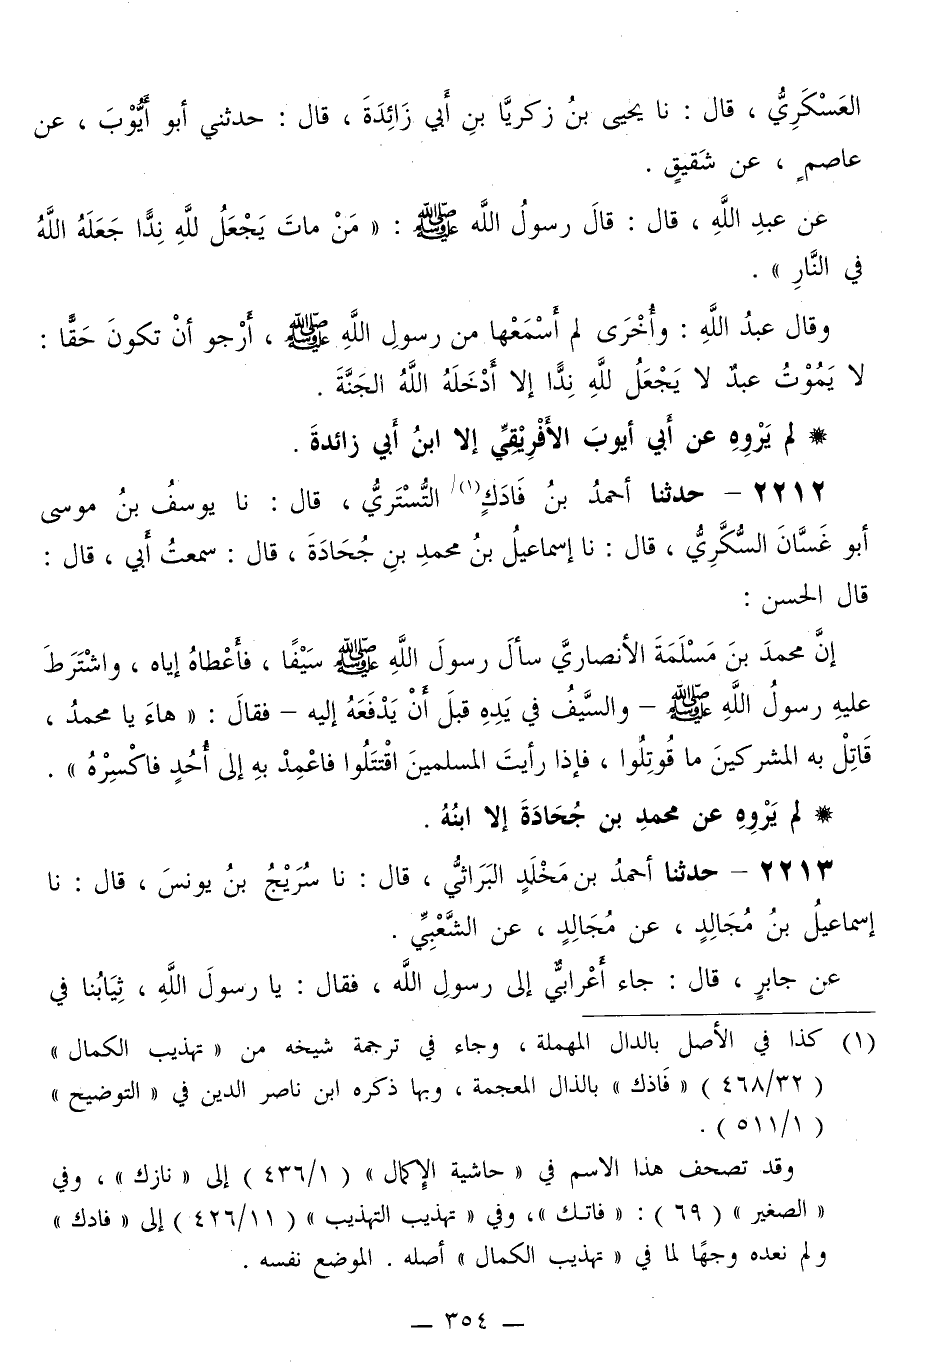 العَسْكَرِيُّ ، قال : نا يحيى بنُ زكريَّا بنِ أَبي زَائِدَةَ ، قال : حدثني أبو أَيُّوْبَ ، عن
عاصمٍ ، عن شَقيقٍ .
عن عبدِ اللَّهِ ، قال : قالَ رسولُ اللَّه ﷺ : « مَنْ ماتَ يَجْعَلُ للَّهِ نِدًّا جَعَلَهُ اللَّهُ
في النَّارِ » .
وقال عبدُ اللَّهِ : وأُخْرَى لم أَسْمَعْها من رسولِ اللَّهِ ﷺ ، أَرْجو أنْ تكونَ حَقًّا :
لا يَمُوْتُ عبدٌ لا يَجْعَلُ للَّهِ نِدًّا إلا أَدْخَلَهُ اللَّهُ الجَنَّةَ .
* لم يَرْوِهِ عن أَبي أيوبَ الأَفْرِيْقِيِّ إلا ابنُ أَبي زائدةَ .
٢٢١٢ – حدثنا أحمدُ بنُ فَادَكٍ(١)/ التُّسْتَريُّ ، قال : نا يوسفُ بنُ موسى
أبو غَسَّانَ السُّكَّرِيُّ ، قال : نا إسماعيلُ بنُ محمدِ بنِ جُحَادَةَ ، قال : سمعتُ أَبي ، قال :
قال الحسن :
إنَّ محمدَ بنَ مَسْلَمَةَ الأنصاريَّ سألَ رسولَ اللَّهِ ﷺ سَيْفًا ، فأَعْطاهُ إياه ، واشْتَرَطَ
عليهِ رسولُ اللَّهِ ﷺ – والسيَّفُ في يَدِهِ قبلَ أَنْ يَدْفَعَهُ إليه – فقالَ : « هاءَ يا محمدُ ،
قَاتِلْ به المشركينَ ما قُوتِلُوا ، فإذا رأيتَ المسلمينَ اقْتَتَلُوا فاعْمِدْ بهِ إلى أُحُدٍ فاكْسِرْهُ » .
* لم يَرْوِهِ عن محمدِ بن جُحَادَةَ إلا ابنُهُ .
٢٢١٣ – حدثنا أحمدُ بن مَخْلَدٍ البَرَاثيُّ ، قال : نا سُرَيْجُ بنُ يونسَ ، قال : نا
إسماعيلُ بنُ مُجَالِدٍ ، عن مُجَالِدٍ ، عن الشَّعْبِيِّ .
عن جابرٍ ، قال : جاء أَعْرابيٌّ إلى رسولِ اللَّه ، فقال : يا رسولَ اللَّهِ ، ثِيَابُنا في
(١) كذا في الأصل بالدال المهملة ، وجاء في ترجمة شيخه من « تهذيب الكمال »
( ٤٦٨/٣٢ ) « فَاذك » بالذال المعجمة ، وبها ذكره ابن ناصر الدين في « التوضيح »
( ٥١١/١ ) .
وقد تصحف هذا الاسم في « حاشية الإكمال » ( ٤٣٦/١ ) إلى « نازك » ، وفي
« الصغير » ( ٦٩ ) : « فاتك »، وفي « تهذيب التهذيب » ( ٤٢٦/١١ ) إلى « فادك »
ولم نعده وجهًا لما في « تهذيب الكمال » أصله . الموضع نفسه .
— ٣٥٤ —